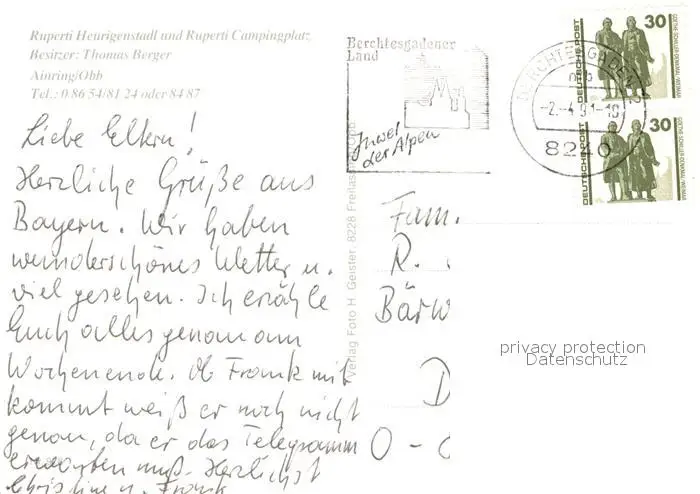 Ruperti Heurigenstadl und Ruperti Campingplatz
Besitzer: Thomas Berger
Ainring/Obb
Tel.: 0 86 54/81 24 oder 84 87
Liebe Eltern!
Herzliche Grüße aus
Bayern. Wir haben
wunderschönes Wetter u.
viel gesehen. Ich erzähle
Euch alles genau am
Wochenende. Ob Frank mit
kommt weiß er noch nicht
genau, da er das Telegramm
erwarten muß. Herzlichst
Christine u. Frank
Verlag Foto H. Geister, 8228 Freilassing
Berchtesgadener
Land
Juwel
der Alpen
BERCHTESGADEN 2
-2.-4.91-18
8240
30
DEUTSCHE POST
GOETHE-SCHILLER-DENKMAL · WEIMAR
30
DEUTSCHE POST
GOETHE-SCHILLER-DENKMAL · WEIMAR
Fam.
R.
Bärw
D
O -
privacy protection
Datenschutz